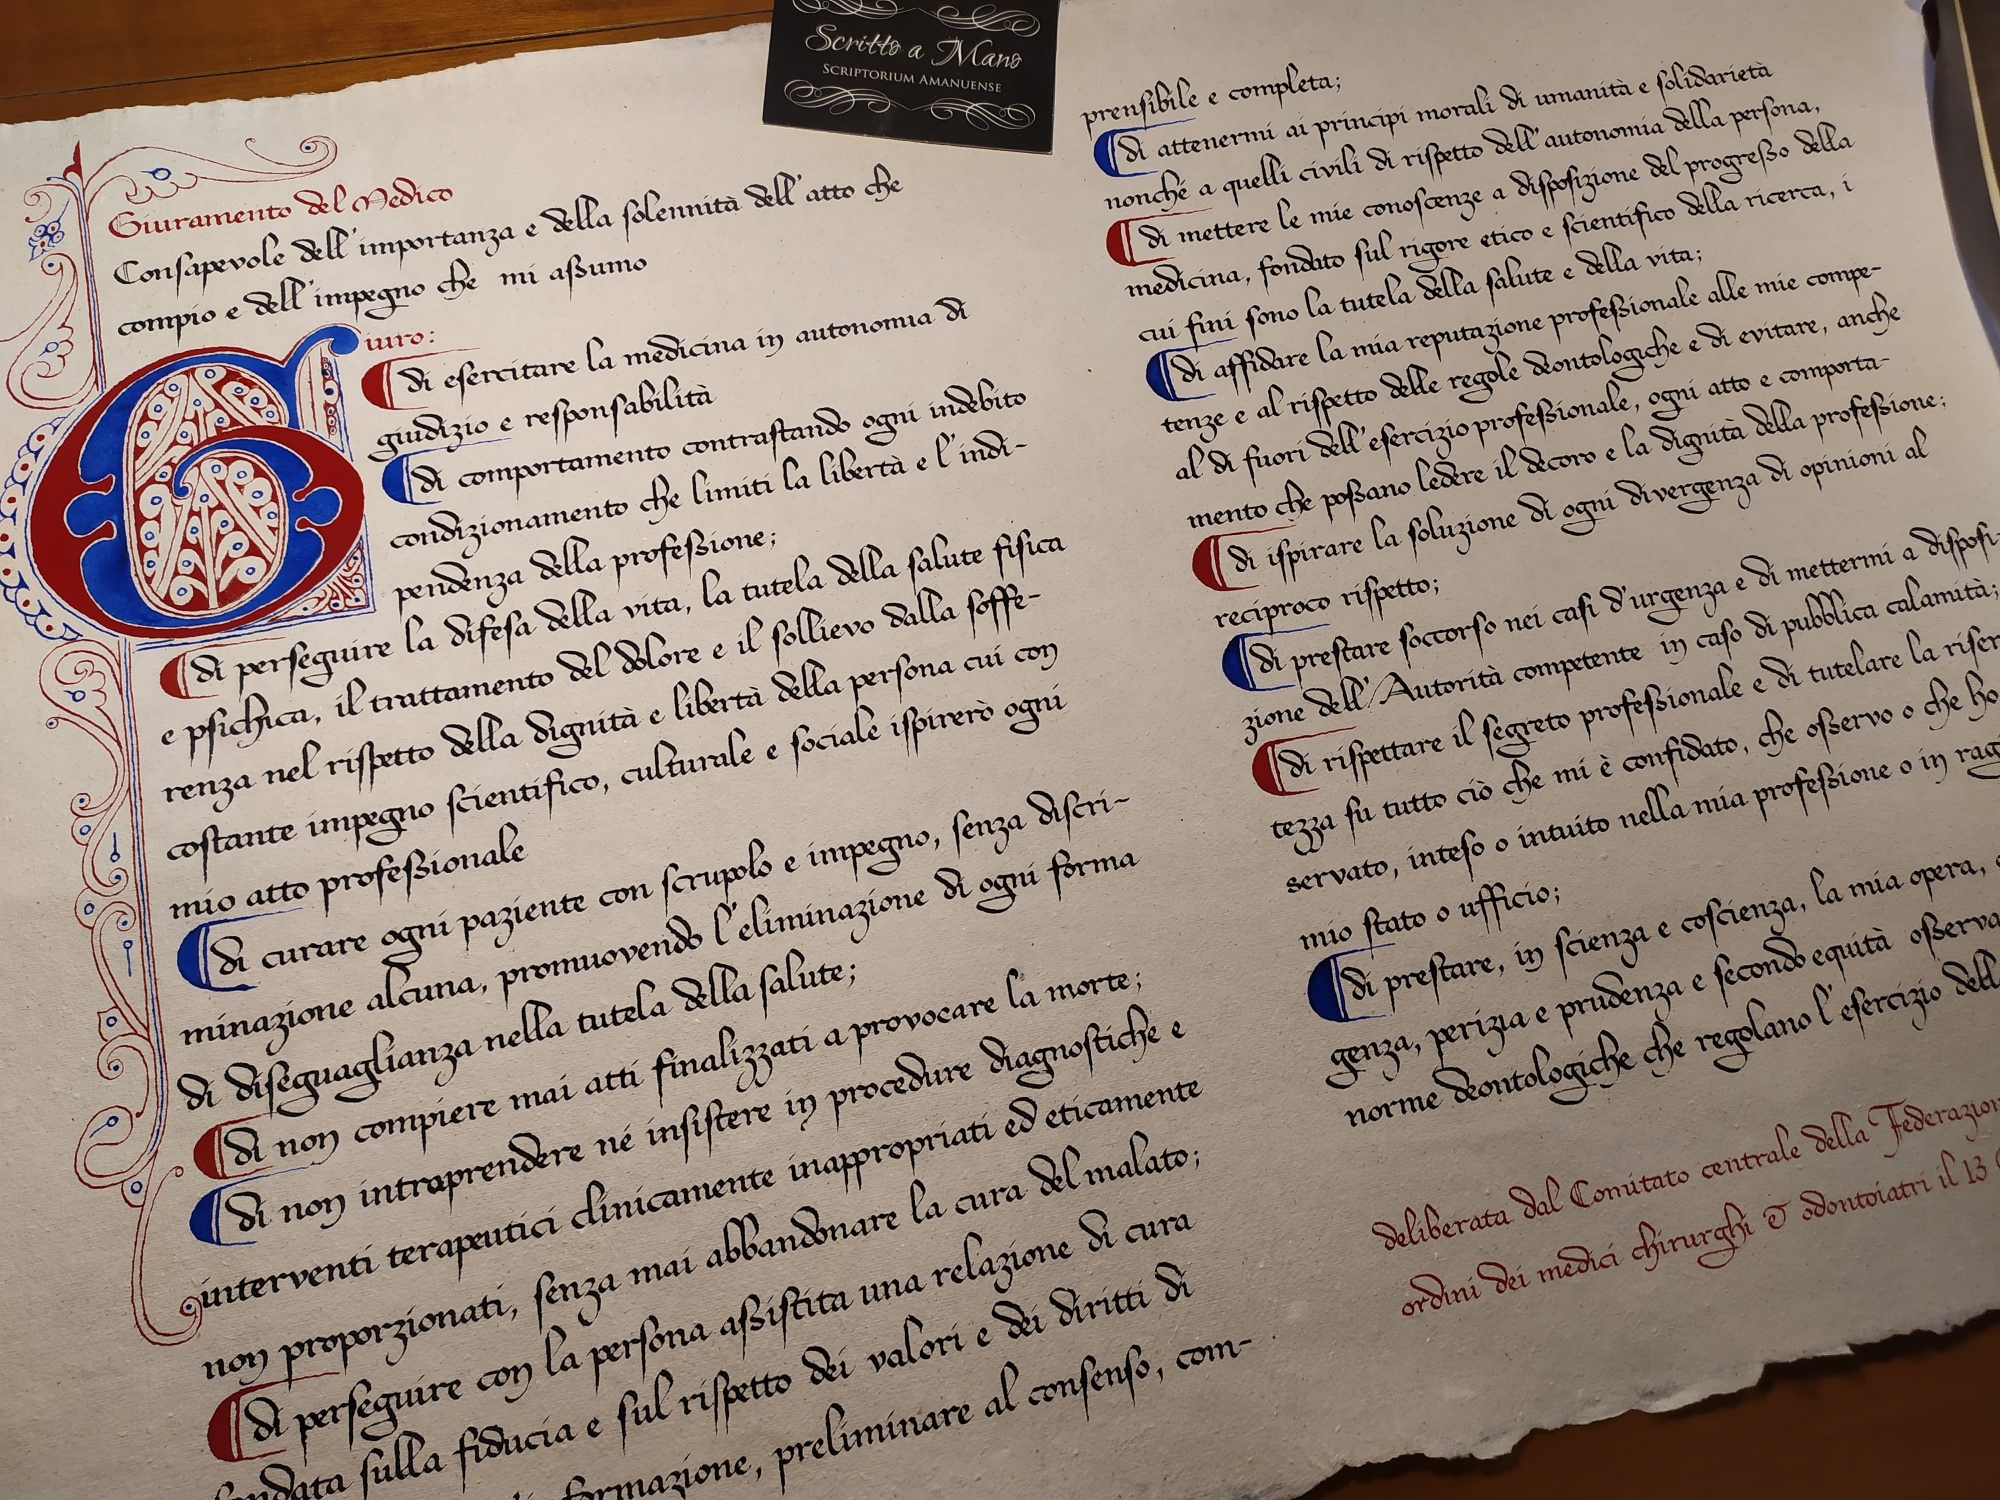 Scritto a Mano
SCRIPTORIUM AMANUENSE
Giuramento del Medico
Consapevole dell'importanza e della solennità dell'atto che
compio e dell'impegno che mi assumo
Giuro:
di esercitare la medicina in autonomia di
giudizio e responsabilità
di comportamento contrastando ogni indebito
condizionamento che limiti la libertà e l'indi-
pendenza della professione;
di perseguire la difesa della vita, la tutela della salute fisica
e psichica, il trattamento del dolore e il sollievo dalla soffe-
renza nel rispetto della dignità e libertà della persona cui con
costante impegno scientifico, culturale e sociale ispirerò ogni
mio atto professionale
di curare ogni paziente con scrupolo e impegno, senza discri-
minazione alcuna, promuovendo l'eliminazione di ogni forma
di diseguaglianza nella tutela della salute;
di non compiere mai atti finalizzati a provocare la morte;
di non intraprendere né insistere in procedure diagnostiche e
interventi terapeutici clinicamente inappropriati ed eticamente
non proporzionati, senza mai abbandonare la cura del malato;
di perseguire con la persona assistita una relazione di cura
fondata sulla fiducia e sul rispetto dei valori e dei diritti di
formazione, preliminare al consenso, com-
prensibile e completa;
di attenermi ai principi morali di umanità e solidarietà
nonché a quelli civili di rispetto dell'autonomia della persona,
di mettere le mie conoscenze a disposizione del progresso della
medicina, fondato sul rigore etico e scientifico della ricerca, i
cui fini sono la tutela della salute e della vita;
di affidare la mia reputazione professionale alle mie compe-
tenze e al rispetto delle regole deontologiche e di evitare, anche
al di fuori dell'esercizio professionale, ogni atto e comporta-
mento che possano ledere il decoro e la dignità della professione;
di ispirare la soluzione di ogni divergenza di opinioni al
reciproco rispetto;
di prestare soccorso nei casi d'urgenza e di mettermi a disposi-
zione dell'Autorità competente in caso di pubblica calamità;
di rispettare il segreto professionale e di tutelare la riser
tezza su tutto ciò che mi è confidato, che osservo o che ho
servato, inteso o intuito nella mia professione o in rag
mio stato o ufficio;
di prestare, in scienza e coscienza, la mia opera,
genza, perizia e prudenza e secondo equità osserva
norme deontologiche che regolano l'esercizio dell
deliberata dal Comitato centrale della Federazion
ordini dei medici chirurghi e odontoiatri il 13